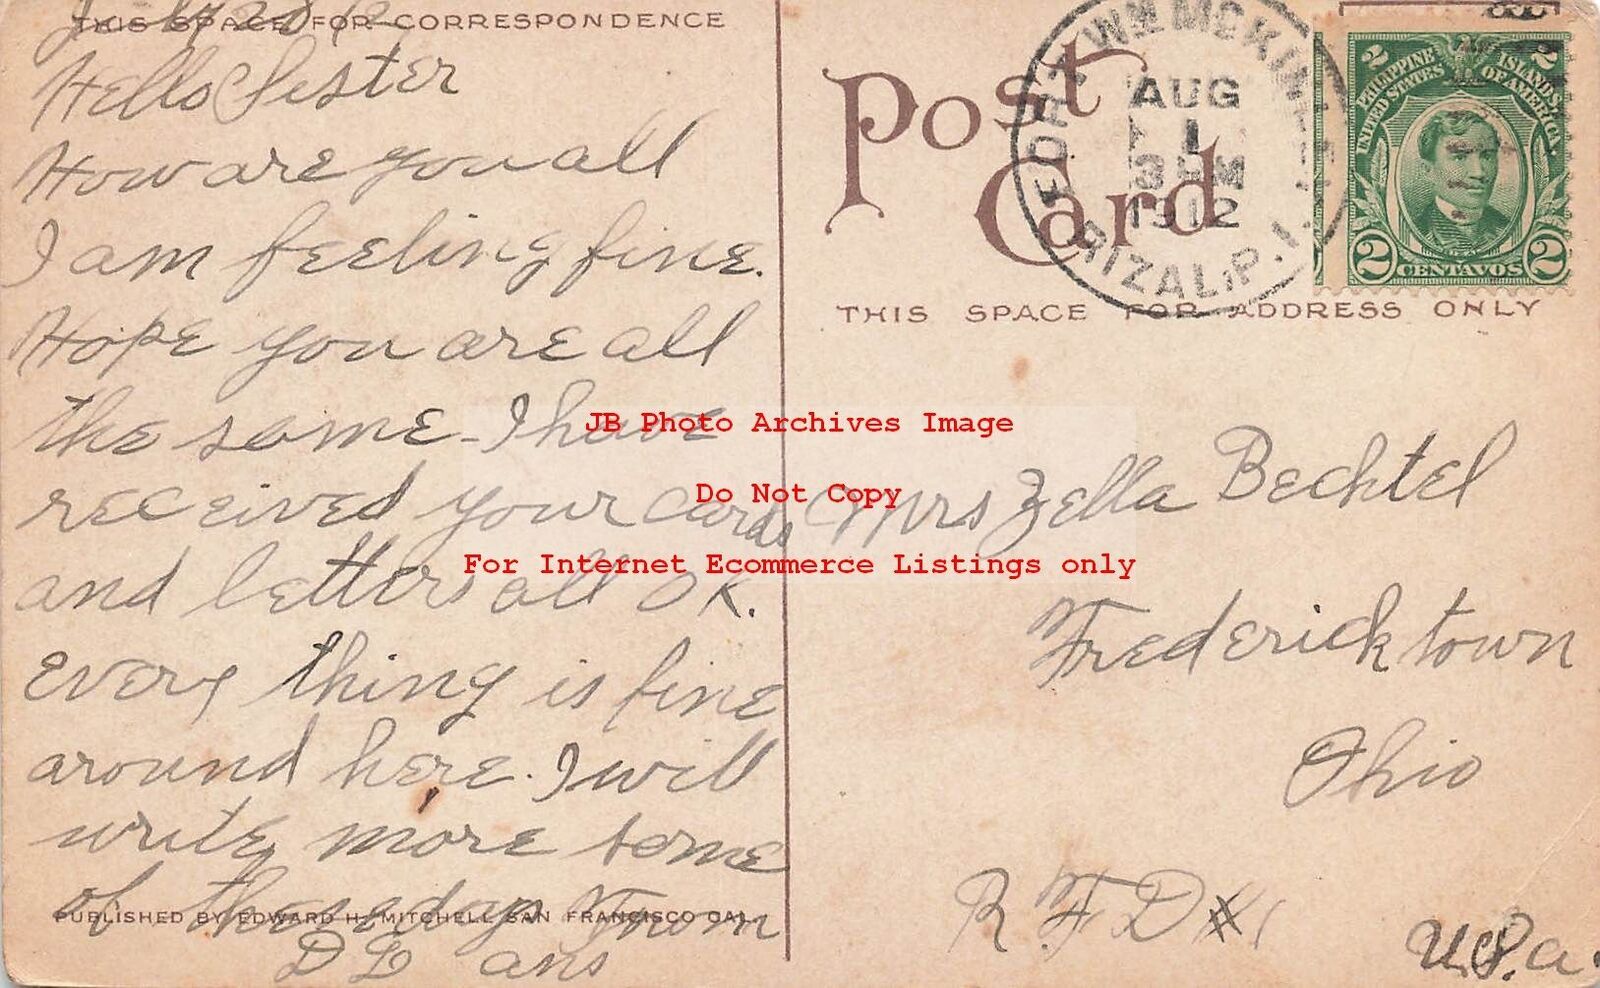 THIS SPACE FOR CORRESPONDENCE
Hello Sister
How are you all
I am feeling fine.
Hope you are all
the same. I have
received your cards
and letters all OK.
Every thing is fine
around here. I will
write more some
of these days From
PUBLISHED BY EDWARD H. MITCHELL SAN FRANCISCO CAL.
ans
Post Card
FORT WM MCKINLEY
AUG
1
3 PM
1912
RIZAL, P.I.
PHILIPPINE ISLANDS
UNITED STATES OF AMERICA
2 CENTAVOS 2
THIS SPACE FOR ADDRESS ONLY
Mrs Zella Bechtel
Fredericktown
Ohio
R.F.D #1
U.S.a.
JB Photo Archives Image
Do Not Copy
For Internet Ecommerce Listings only